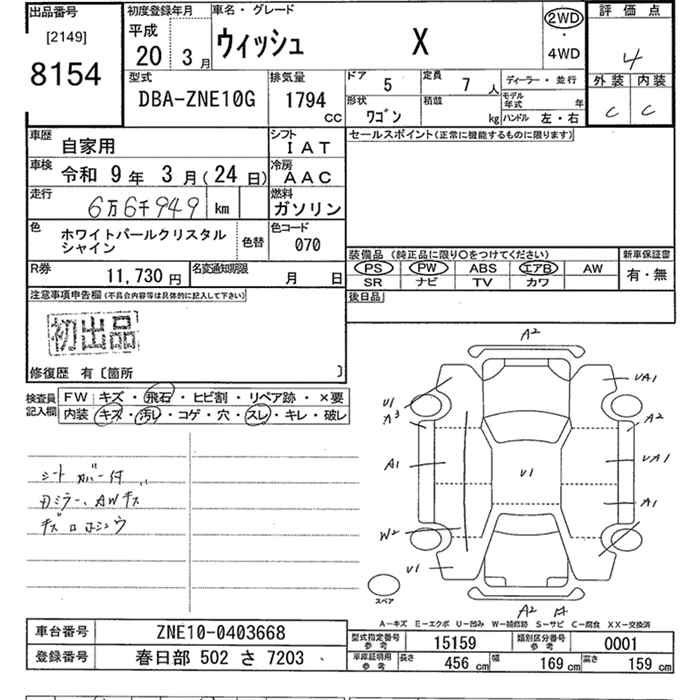 出品番号 初度登録年月 車名・グレード 評価点
[2149] 平成 20 年 3月 ウィッシュ X 2WD・4WD 4
8154
型式 排気量 ドア 定員 ディーラー・並行 外装 内装
DBA-ZNE10G 1794 CC 5 7人 モデル年式 年 C C
形状 ワゴン 積載 kg ハンドル 左・右
車歴 自家用 シフト IAT セールスポイント(正常に機能するものに限ります)
車検 令和 9年 3月(24日) 冷房 AAC
走行 6万6千949 km 燃料 ガソリン
色 ホワイトパールクリスタルシャイン 色替 色コード 070
装備品(純正品に限り○をつけてください) 新車保証書
PS PW ABS エアB AW 有・無
SR ナビ TV カワ
R券 11,730円 名変通知期限 月 日
後日品
注意事項申告欄(不具合内容等は具体的に記入して下さい)
初出品
修復歴 有〔箇所 〕
検査員記入欄 FW キズ・飛石・ヒビ割・リペア跡・×要
内装 キズ・汚レ・コゲ・穴・スレ・キレ・破レ
シートカバー付
AWキズ
A2
UA1
U1
A3 A2
A1 U1 UA1
A1
W2
U1
スペア
A2 A
A-キズ E-エクボ U-凹み W-補修跡 S-サビ C-腐食 XX-交換済
車台番号 ZNE10-0403668
型式指定番号 参考 15159 類別区分番号 参考 0001
登録番号 春日部 502 さ 7203
車庫証明用 参考 長さ 456 cm 幅 169 cm 高さ 159 cm